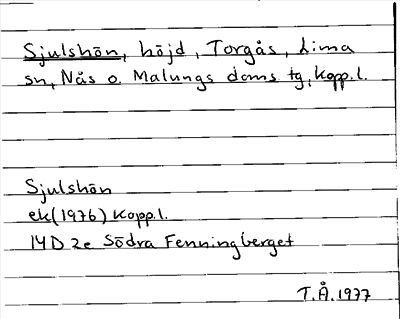 Sjulshön, höjd, Torgås, Lima
sn, Nås o. Malungs doms tg, Kopp.l.
Sjulshön
ek(1976) Kopp.l.
14D 2e Södra Fenningberget
T.Å.1977